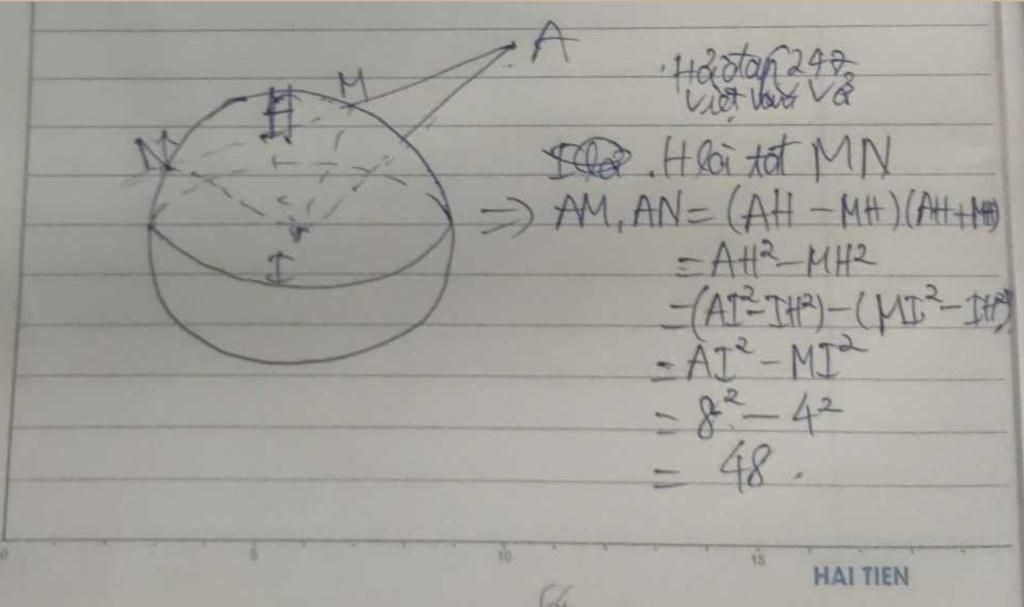 A
M
N
H
I
.Hỏi đáp 247
Viết vào vở
. H là tđ MN
=> AM.AN = (AH - MH)(AH + MH)
= AH² - MH²
= (AI² - IH²) - (MI² - IH²)
= AI² - MI²
= 8² - 4²
= 48.
0 5 10 15
HAI TIEN